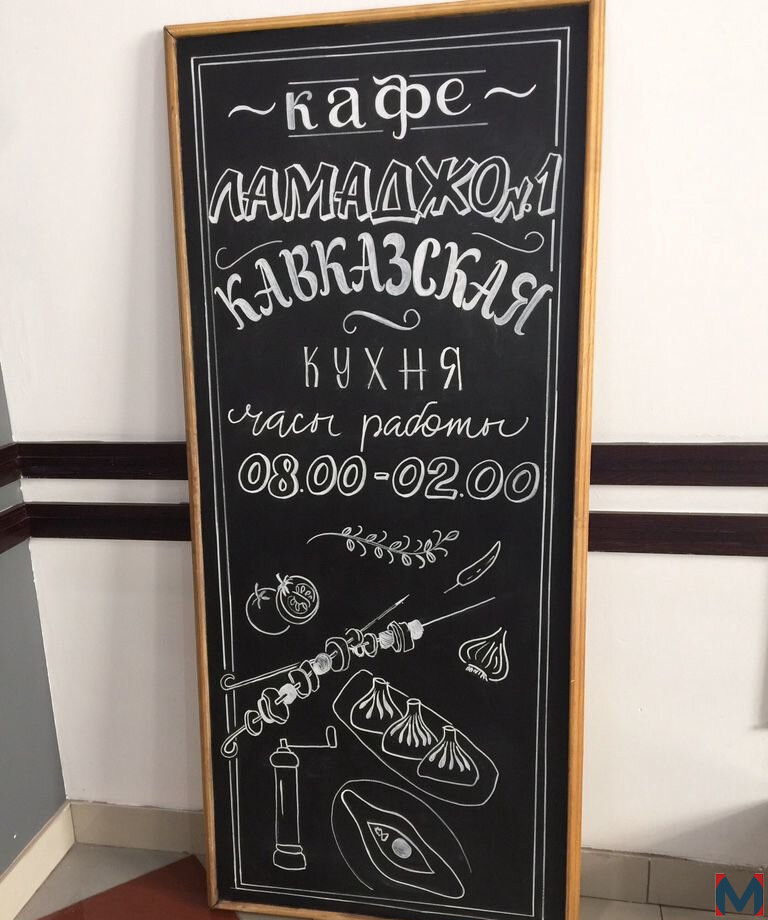 ~кафе~
ЛАМАДЖО №.1
КАВКАЗСКАЯ
КУХНЯ
часы работы
08.00-02.00
M